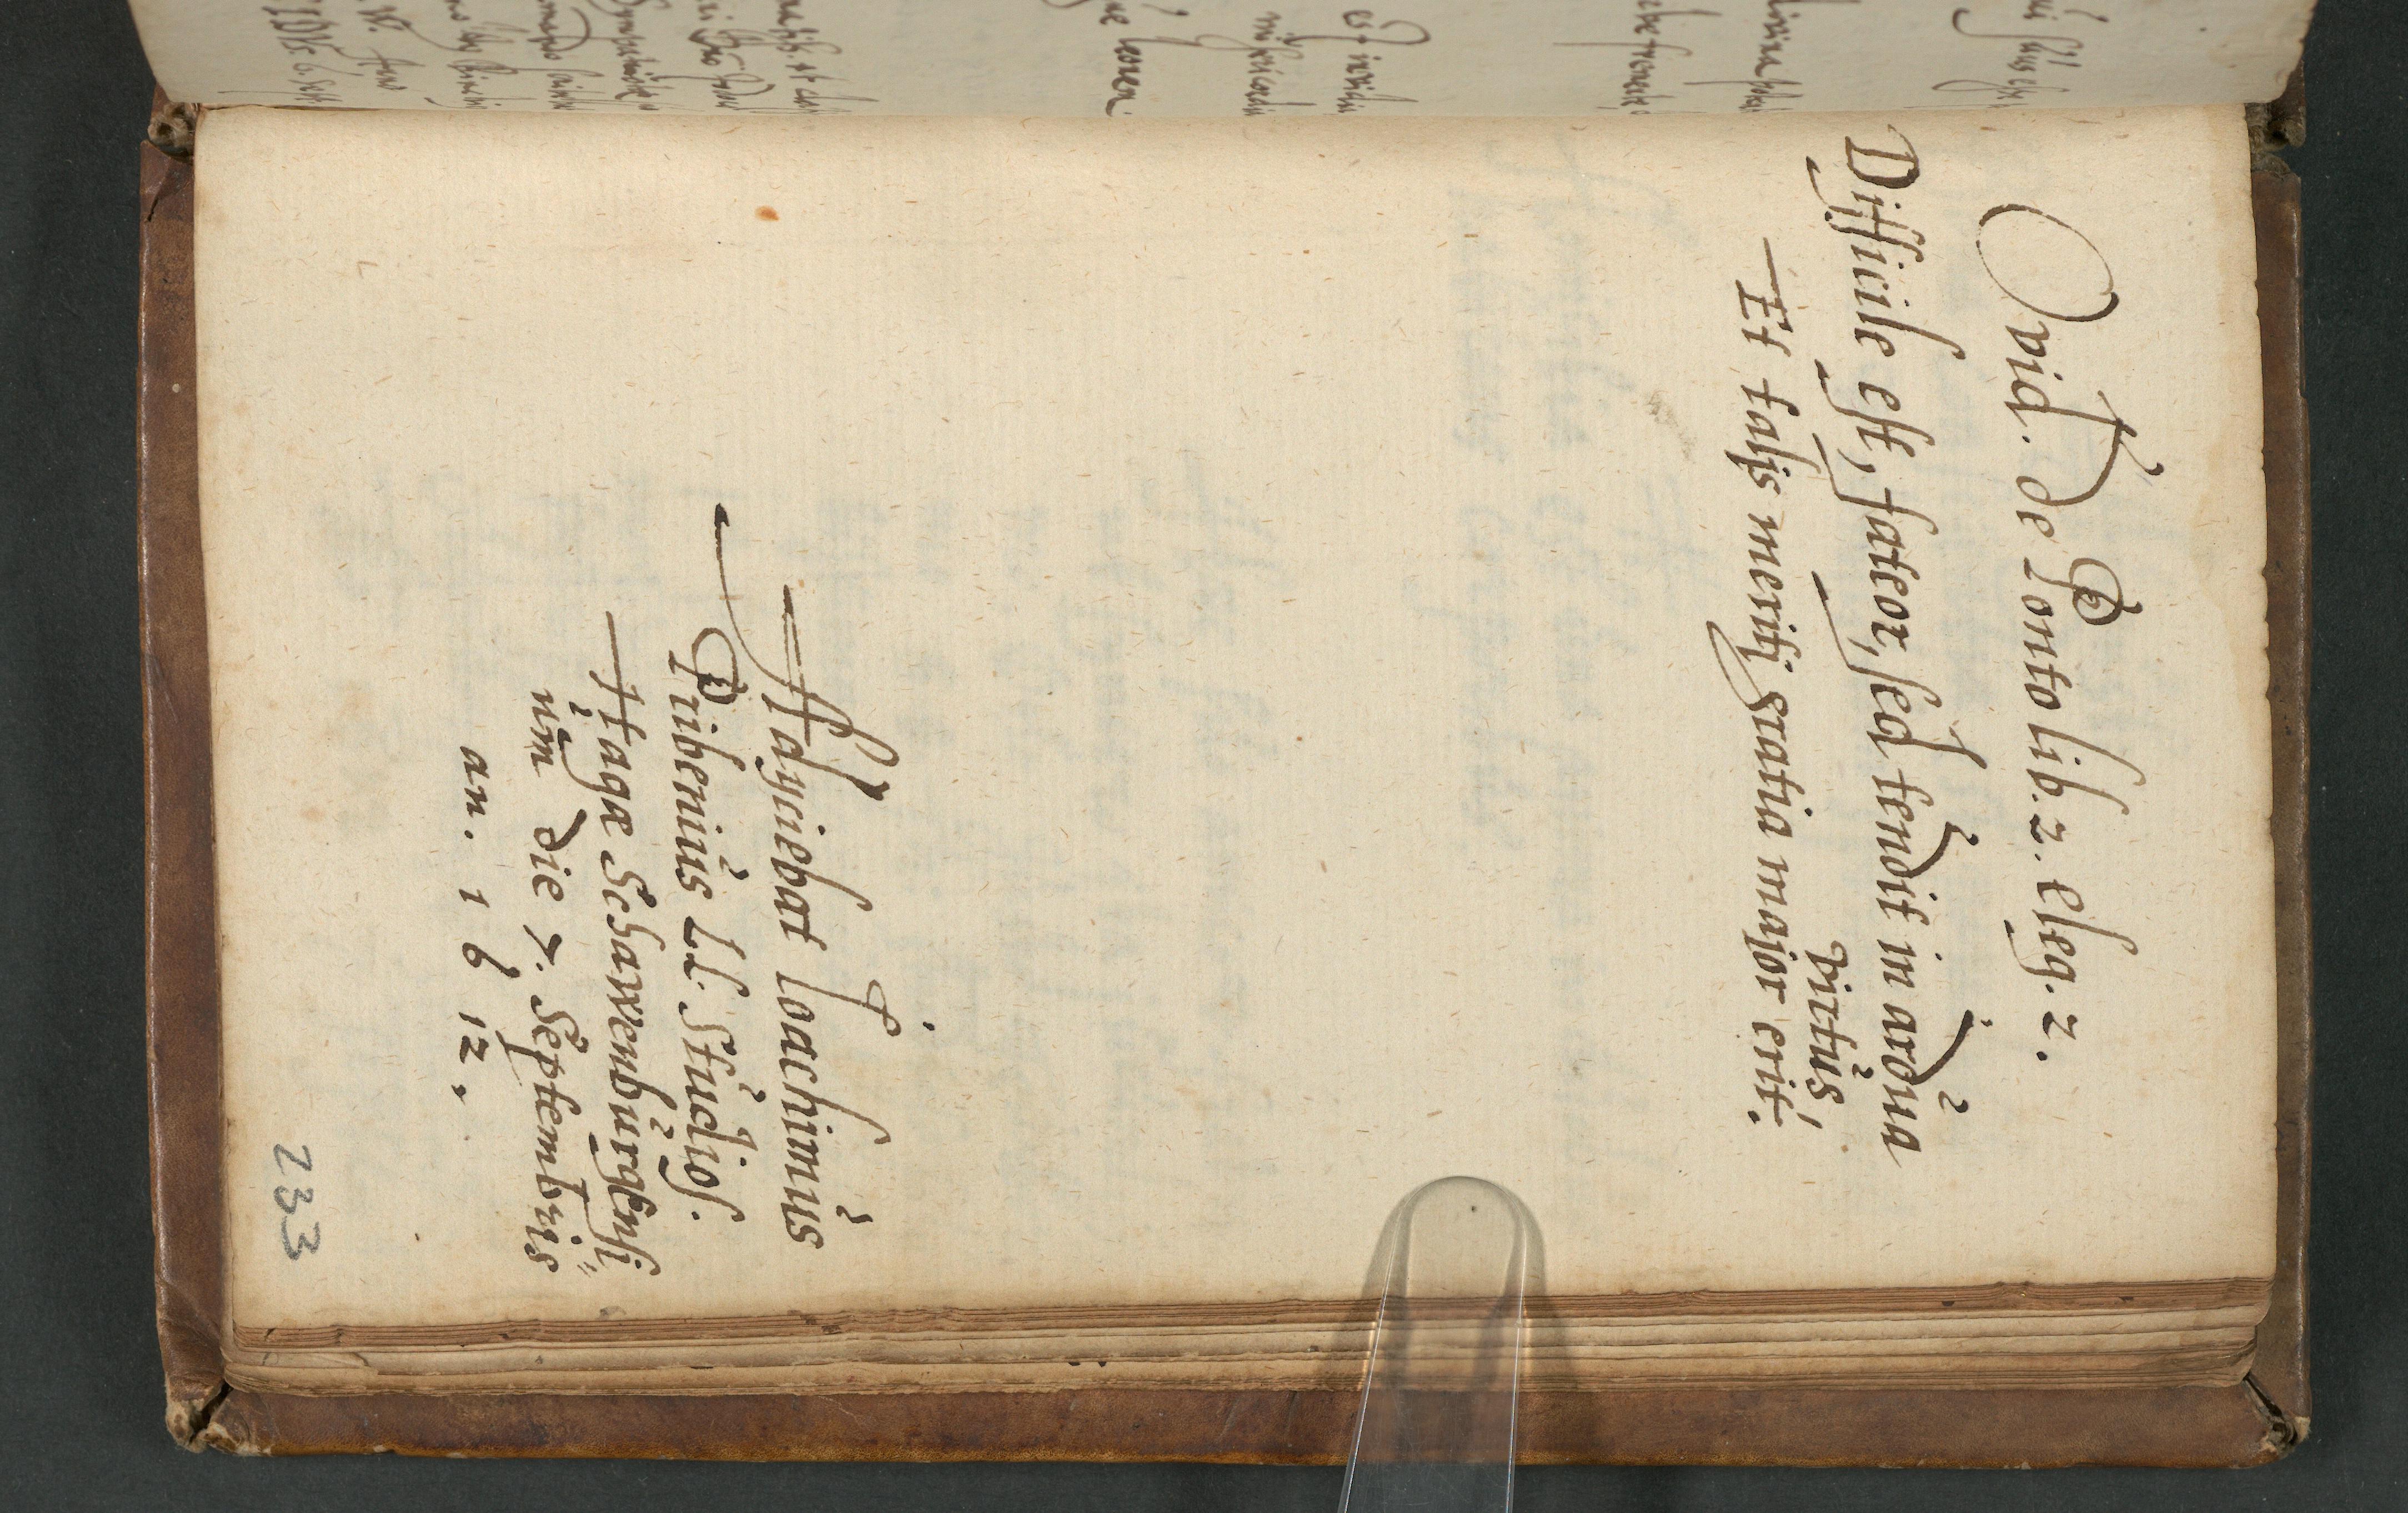 Ovid. de Ponto lib. 2. eleg. 2.
Difficile est, fateor, sed tendit in ardua
virtus!
Et talis meriti gratia major erit.
Adijciebat Joachimus
Pribenius LL. Studios.
Hagæ Schawenburgensi„
um die 7. Septembris
an. 1 6 12.
233